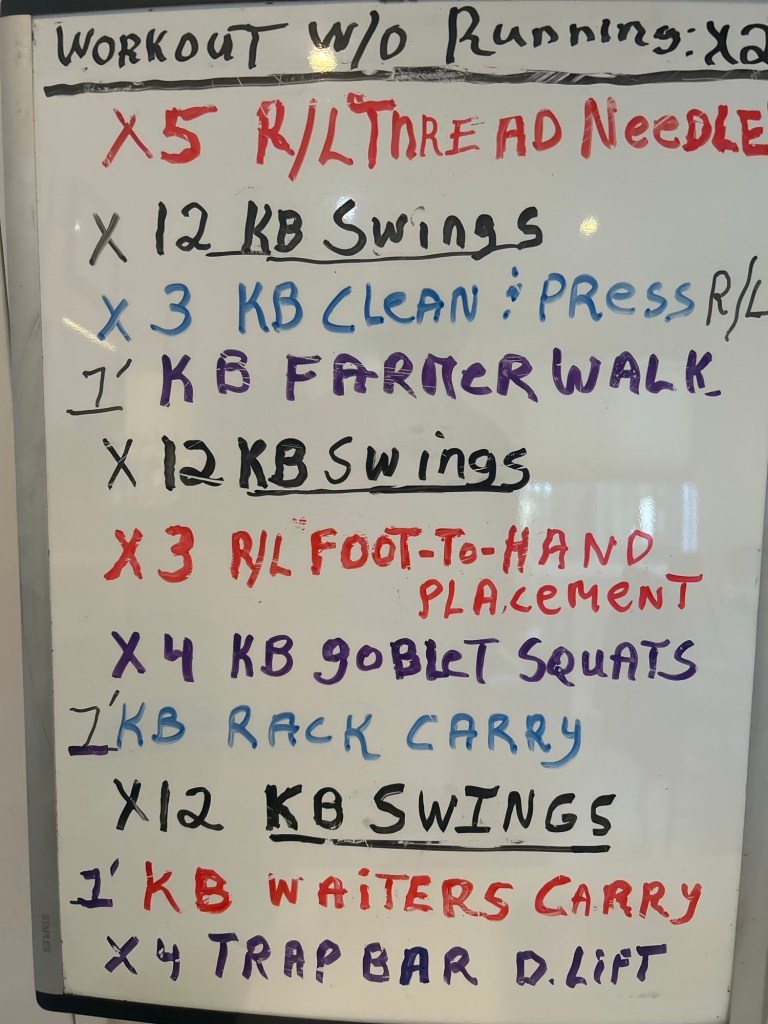 WORKOUT W/O Running: X2
X5 R/L THREAD NeeDLE
X 12 KB Swings
X 3 KB CLeAN & PRess R/L
1' KB FARMeR WALK
X 12 KB Swings
X 3 R/L FOOT-To-HAND
PLACeMeNT
X 4 KB goBLeT SQUATS
1' KB RACK CARRY
X12 KB SWINGS
1' KB WAiTERS CARRY
X 4 TRAP BAR D.LiFT
STAPLES